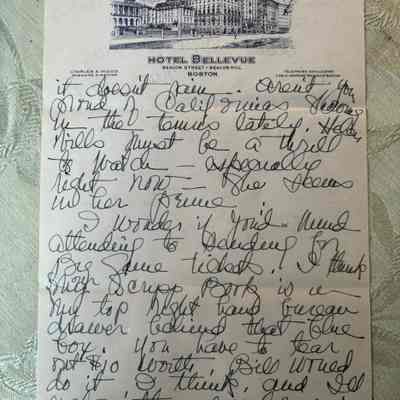 HOTEL BELLEVUE
BEACON STREET - BEACON HILL
BOSTON
it doesn't rain. Aren't you
proud of California's showing
in the tennis lately. Helen
Wills must be a thrill
to watch - especially
right now - She seems
in her prime.
I wonder if you'd mind
attending to sending for
Big Game tickets! I think
my Scrip Book is in
my top right hand bureau
drawer behind that blue
box. You have to tear
out $10 worth. Bill would
do it I think, and I'll